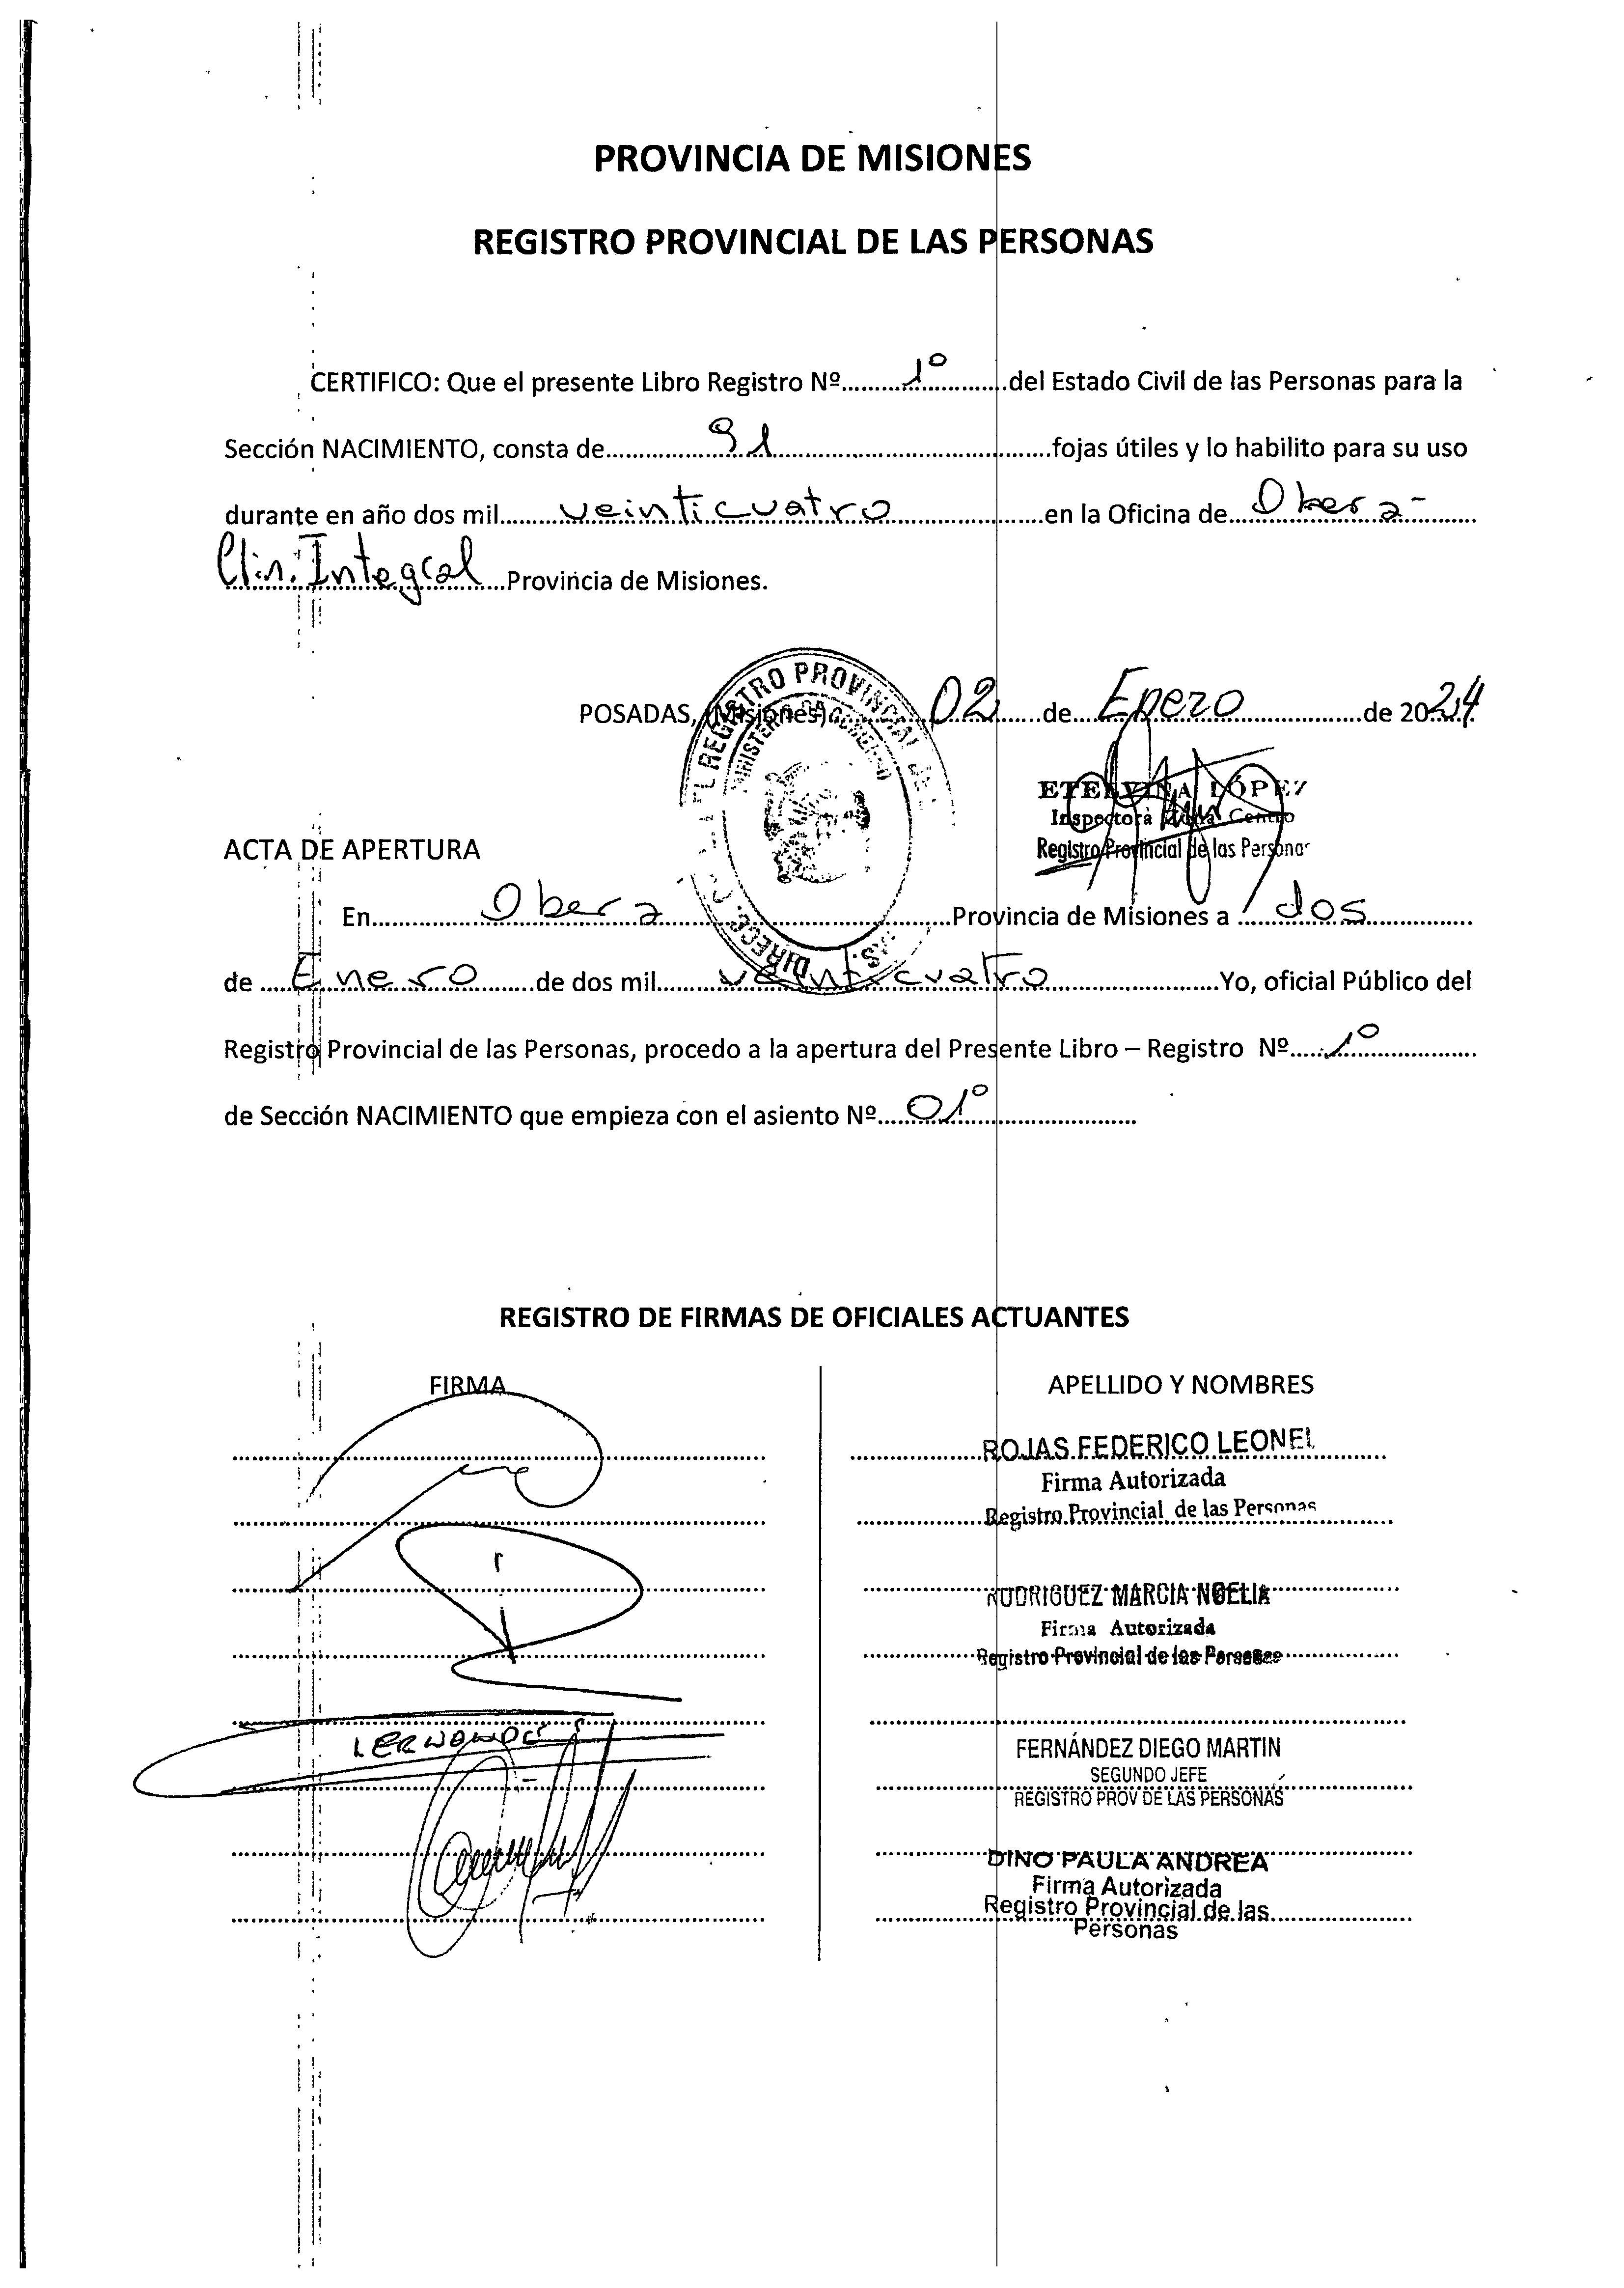 PROVINCIA DE MISIONES
REGISTRO PROVINCIAL DE LAS PERSONAS
CERTIFICO: Que el presente Libro Registro Nº 1º del Estado Civil de las Personas para la
Sección NACIMIENTO, consta de 91 fojas útiles y lo habilito para su uso
durante en año dos mil veinticuatro en la Oficina de Obera-
Clin. Integral Provincia de Misiones.
POSADAS, (Misiones) 02 de Enero de 2024
ETELVINA LÓPEZ
Inspectora Zona Centro
Registro Provincial de las Personas
ACTA DE APERTURA
En Obera Provincia de Misiones a dos
de Enero de dos mil veinticuatro Yo, oficial Público del
Registro Provincial de las Personas, procedo a la apertura del Presente Libro – Registro Nº 1º
de Sección NACIMIENTO que empieza con el asiento Nº 01º
REGISTRO DE FIRMAS DE OFICIALES ACTUANTES
FIRMA APELLIDO Y NOMBRES
ROJAS FEDERICO LEONEL
Firma Autorizada
Registro Provincial de las Personas
RODRIGUEZ MARCIA NOELIA
Firma Autorizada
Registro Provincial de las Personas
FERNÁNDEZ DIEGO MARTIN
SEGUNDO JEFE
REGISTRO PROV DE LAS PERSONAS
DINO PAULA ANDREA
Firma Autorizada
Registro Provincial de las
Personas